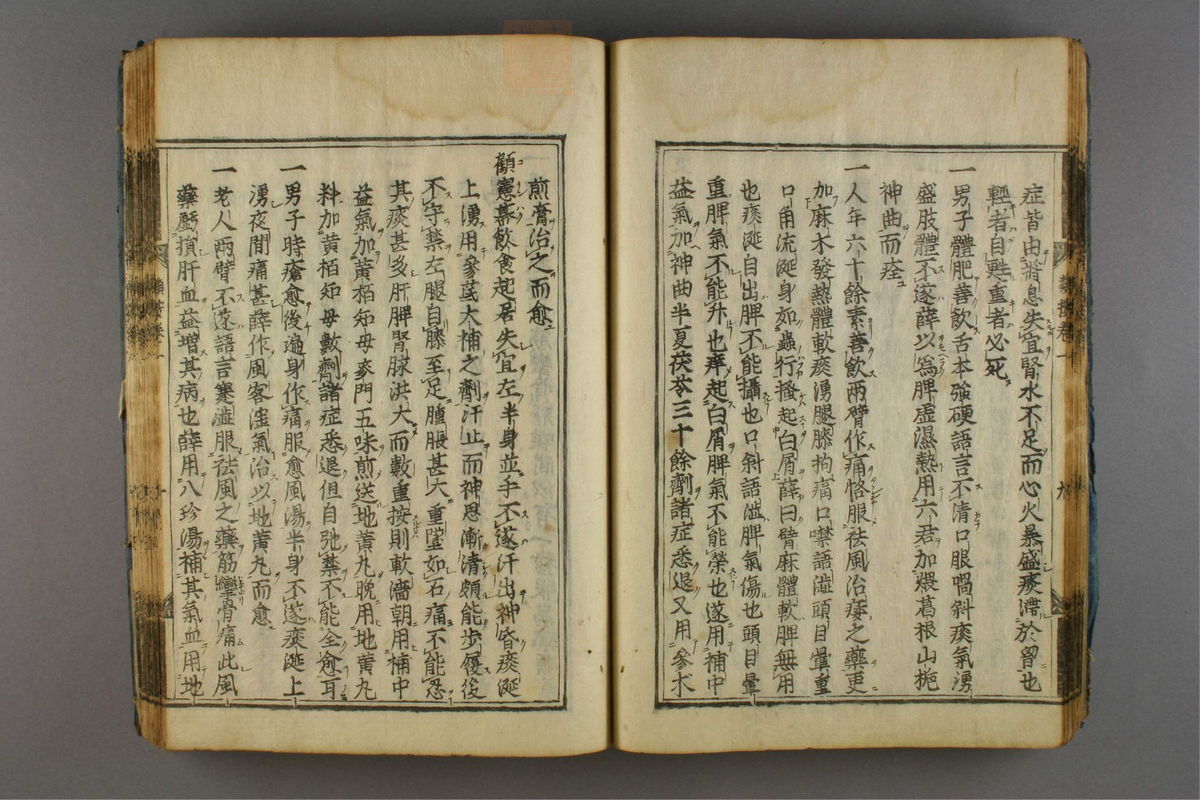 症皆由將息失宜腎水不足而心火暴盛痰滯於胷也
輕者自甦重者必死
一男子體肥善飲舌本強硬語言不清口眼喎斜痰氣湧
盛肢體不遂薛以爲脾虛濕熱用六君加煨葛根山梔
神曲而痊
一人年六十餘素善飲兩臂作痛恪服祛風治痿之藥更
加麻木發熱體軟痰湧腿膝拘痛口噤語澁頭目暈重
口角流涎身如蟲行搔起白屑薛曰臂麻體軟脾無用
也痰涎自出脾不能攝也口斜語澁脾氣傷也頭目暈
重脾氣不能升也痒起白屑脾氣不能榮也遂用補中
益氣加神曲半夏茯苓三十餘劑諸症悉退又用參术
煎膏治之而愈
顧憲幕飲食起居失宜左半身並手不遂汗出神昏痰涎
上湧用參茋大補之劑汗止而神思漸清頗能步履後
不守禁左腿自膝至足腫脹甚大重墜如石痛不能忍
其痰甚多肝脾腎脉洪大而數重按則軟濇朝用補中
益氣加黄栢知母麥門五味煎送地黄丸晩用地黄丸
料加黄栢知母數劑諸症悉退但自弛禁不能全愈耳
一男子時瘡愈後遍身作痛服愈風湯半身不遂痰涎上
湧夜間痛甚薛作風客滛氣治以地黄丸而愈
一老人兩臂不遂語言蹇澁服祛風之藥筋攣骨痛此風
藥虧損肝血益增其病也薛用八珍湯補其氣血用地